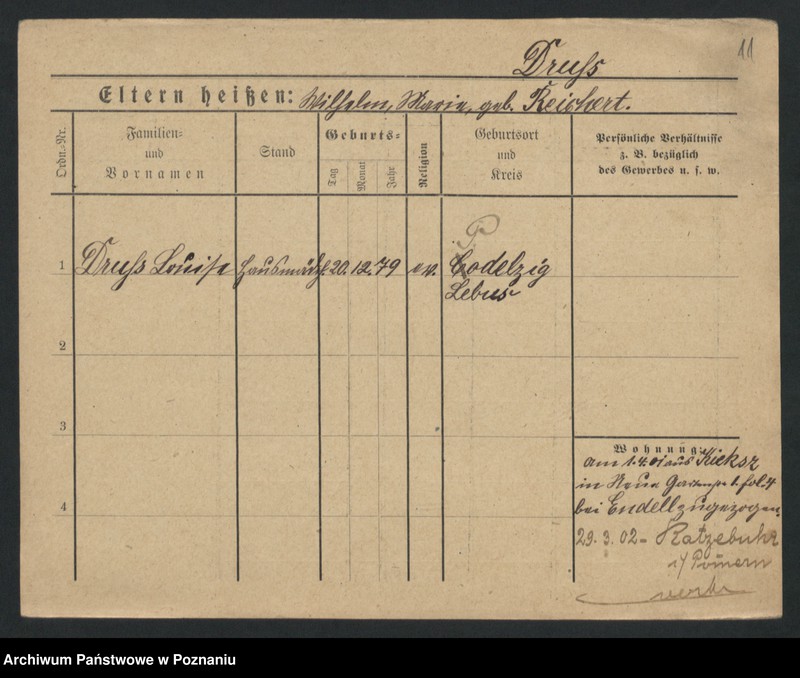 11
Druss
Eltern heißen: Wilhelm, Marie, geb. Reichert.
Ordn.-Nr.
Familien-
und
Vornamen
Stand
Geburts-
Tag
Monat
Jahr
Religion
Geburtsort
und
Kreis
Persönliche Verhältnisse
z. B. bezüglich
des Gewerbes u. s. w.
P
1 Druss Louise Hausmädch. 20. 12. 79 ev. Codelzig
Lebus
2
3
4
Wohnung:
am 1.4.01 aus Kieksz
in Neue Gartenstr
bei Endell zugezogen.
29. 3. 02 - Ratzebuhr
i/ Pomern
Archiwum Państwowe w Poznaniu